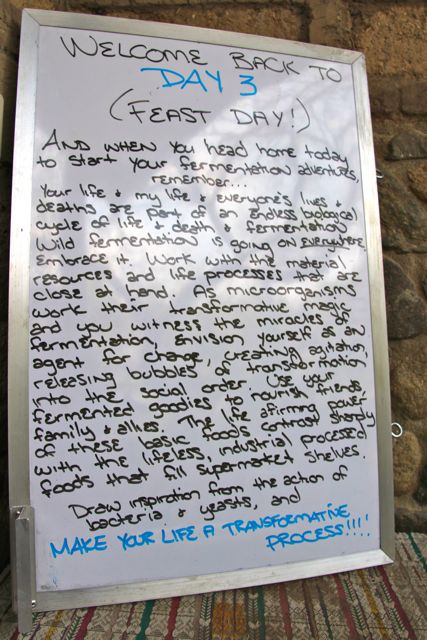 WELCOME BACK TO
DAY 3
(FEAST DAY!)
AND WHEN YOU HEAD HOME TODAY
to start your fermentation adventures,
remember...
Your life & my life & everyone's lives &
deaths are part of an endless biological
cycle of life & death & fermentation
Wild fermentation is going on everywhere
Embrace it. Work with the material
resources and life processes that are
close at hand. As microorganisms
work their transformative magic
and you witness the miracles of
fermentation, envision yourself as an
agent for change, creating agitation,
releasing bubbles of transformation,
into the social order. Use your
fermented goodies to nourish friends
family & allies. The life afirming power
of these basic foods contrast sharply
with the lifeless, industrial processed
foods that fill supermarket shelves.
Draw inspiration from the action of
bacteria & yeasts, and
MAKE YOUR LIFE A TRANSFORMATIVE
PROCESS!!!!